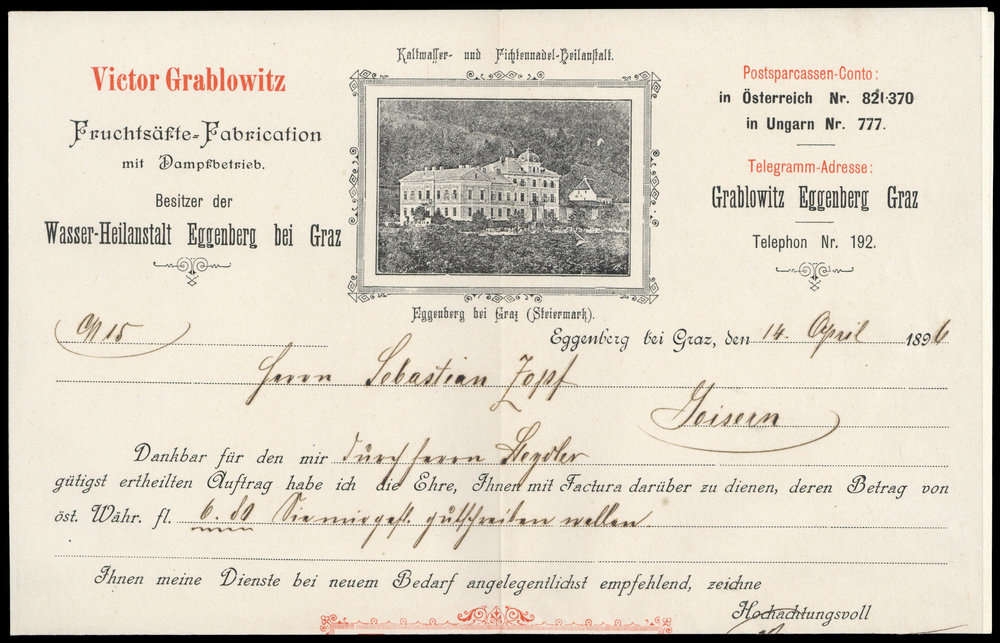 Kaltwasser- und Fichtennadel-Heilanstalt.
Victor Grablowitz
Fruchtsäfte-Fabrication
mit Dampfbetrieb.
Besitzer der
Wasser-Heilanstalt Eggenberg bei Graz
Postsparcassen-Conto:
in Österreich Nr. 821·370
in Ungarn Nr. 777.
Telegramm-Adresse:
Grablowitz Eggenberg Graz
Telephon Nr. 192.
Eggenberg bei Graz (Steiermark).
15
Eggenberg bei Graz, den 14. April 1896
Herrn Sebastian Zopf
Goisern
Dankbar für den mir durch Herrn
gütigst ertheilten Auftrag habe ich die Ehre, Ihnen mit Factura darüber zu dienen, deren Betrag von
öst. Währ. fl. 6.80 Sie mir gefl. gutschreiben wollen.
Ihnen meine Dienste bei neuem Bedarf angelegentlichst empfehlend, zeichne
Hochachtungsvoll